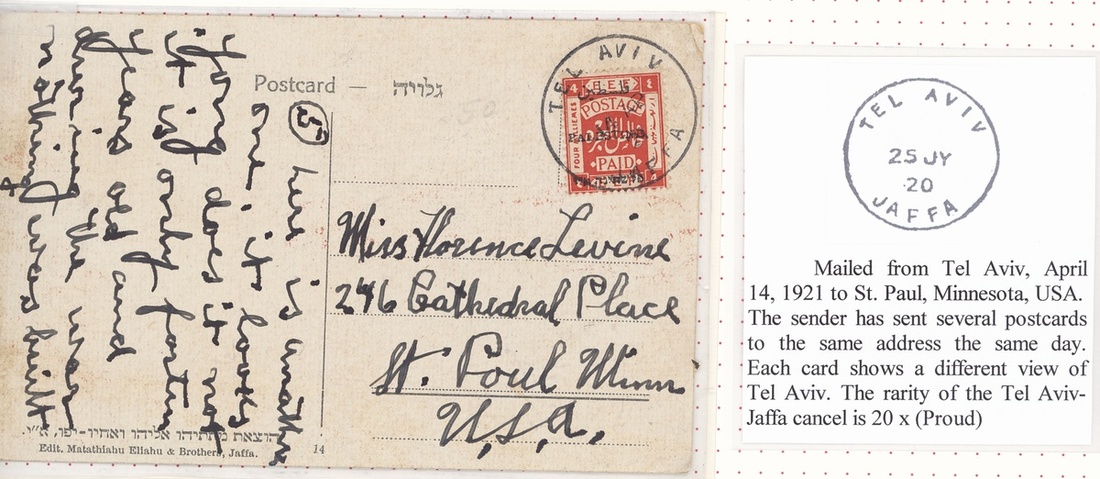 Postcard — גלויה
5
here is another
one it looks
fine does it not
It is only
years old and
during the war
nothing was built
TEL AVIV
JAFFA
4 E.E.F. ٤
POSTAGE
PALESTINE
PAID
FOUR MILLIEMES
Miss Florence Levine
246 Cathedral Place
St. Paul Minn
U.S.A.
הוצאת מתתיהו אליהו ואחיו-יפו, א"י.
Edit. Matathiahu Eliahu & Brothers, Jaffa.
14
TEL AVIV
25 JY
20
JAFFA
Mailed from Tel Aviv, April
14, 1921 to St. Paul, Minnesota, USA.
The sender has sent several postcards
to the same address the same day.
Each card shows a different view of
Tel Aviv. The rarity of the Tel Aviv-
Jaffa cancel is 20 x (Proud)